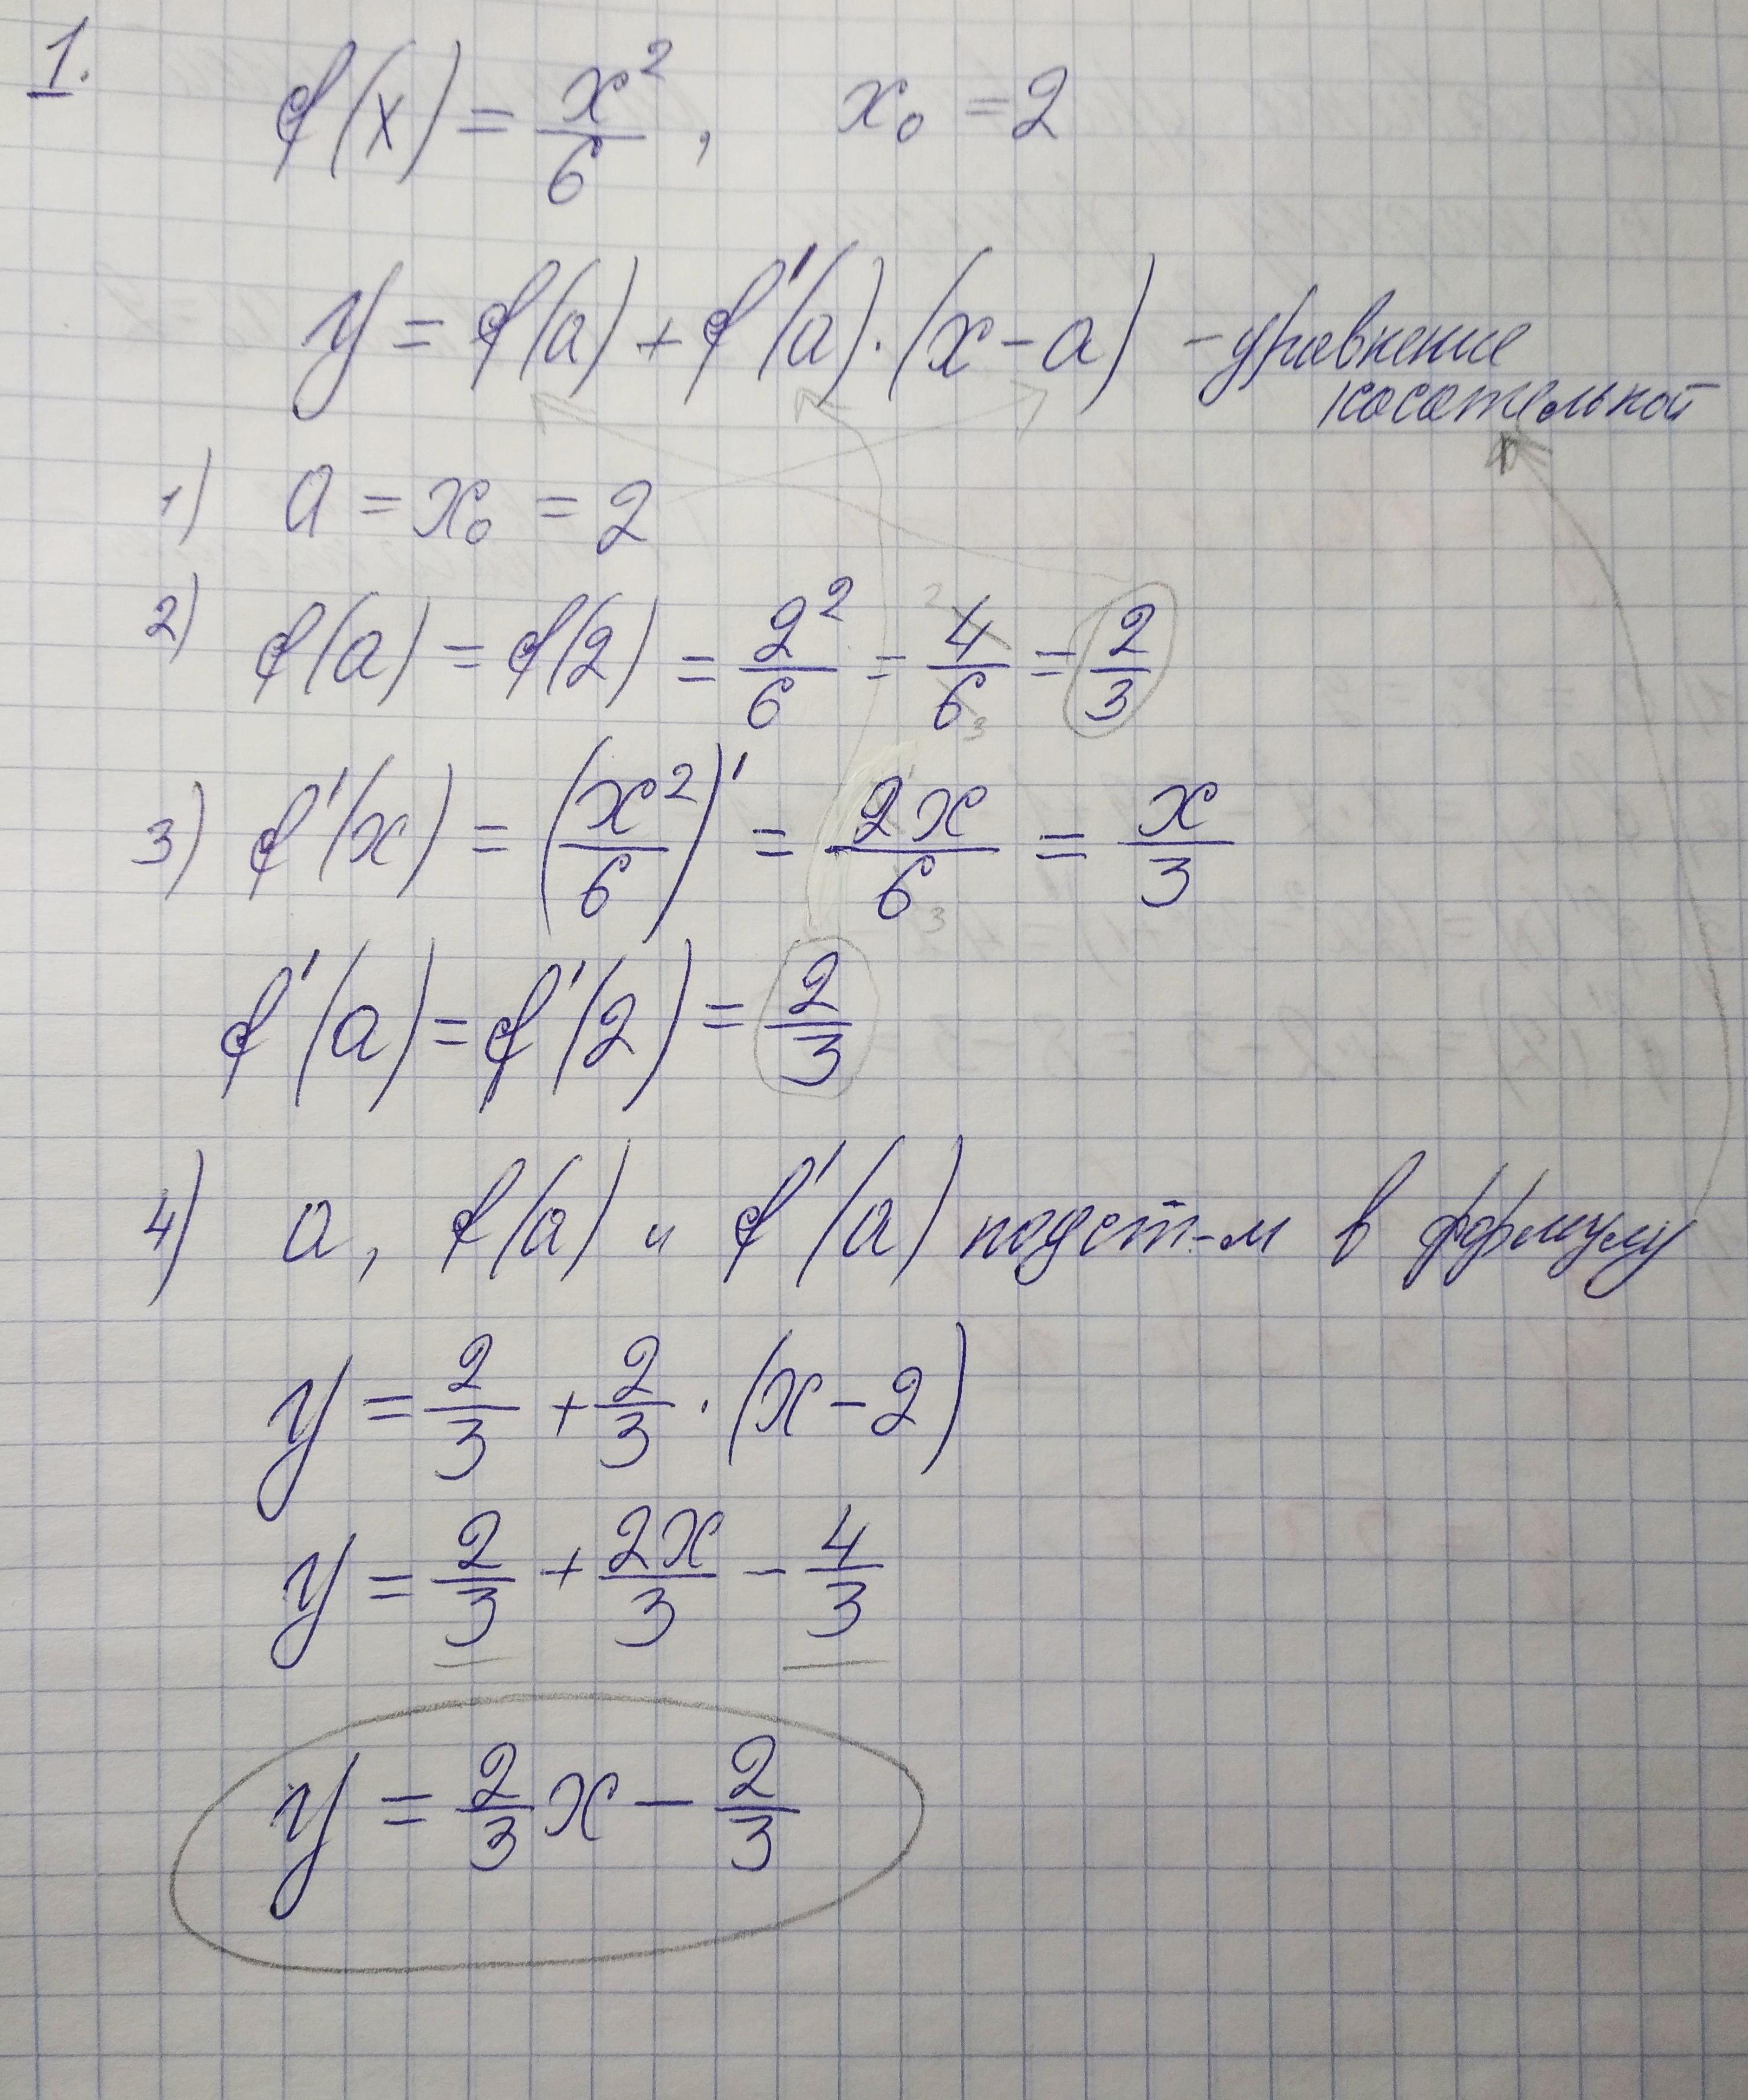 1.
f(x) = x²/6 , x₀ = 2
y = f(a) + f'(a)·(x-a) - уравнение
касательной
1) a = x₀ = 2
2) f(a) = f(2) = 2²/6 = 4/6 = 2/3
3) f'(x) = (x²/6)' = 2x/6 = x/3
f'(a) = f'(2) = 2/3
4) a, f(a) и f'(a) подст-м в формулу
y = 2/3 + 2/3 · (x-2)
y = 2/3 + 2x/3 - 4/3
y = 2/3 x - 2/3